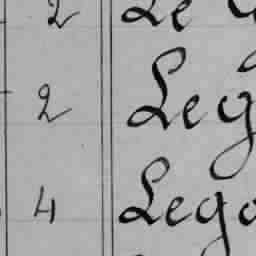 2 Le
2 Leg
4 Lego